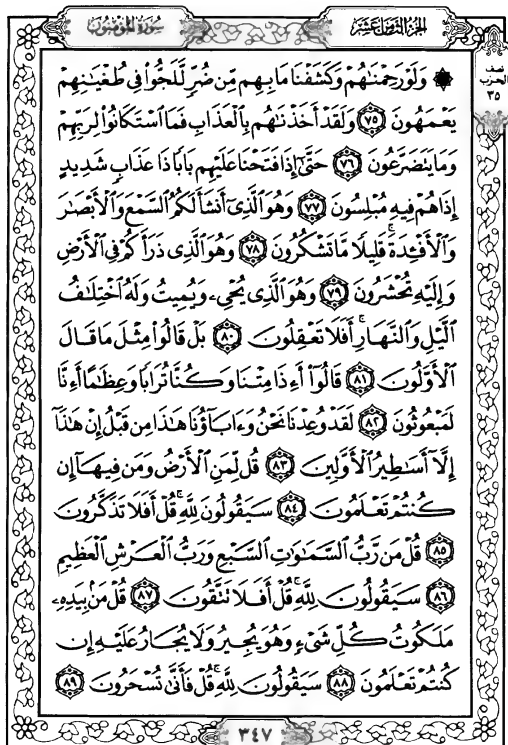 الجزء الثامن عشر
سورة المؤمنون
نصف
الحزب
٣٥
۞ وَلَوْ رَحِمْنَٰهُمْ وَكَشَفْنَا مَا بِهِم مِّن ضُرٍّ لَّلَجُّوا۟ فِى طُغْيَٰنِهِمْ
يَعْمَهُونَ ٧٥ وَلَقَدْ أَخَذْنَٰهُم بِٱلْعَذَابِ فَمَا ٱسْتَكَانُوا۟ لِرَبِّهِمْ
وَمَا يَتَضَرَّعُونَ ٧٦ حَتَّىٰٓ إِذَا فَتَحْنَا عَلَيْهِم بَابًا ذَا عَذَابٍ شَدِيدٍ
إِذَا هُمْ فِيهِ مُبْلِسُونَ ٧٧ وَهُوَ ٱلَّذِىٓ أَنشَأَ لَكُمُ ٱلسَّمْعَ وَٱلْأَبْصَٰرَ
وَٱلْأَفْـِٔدَةَ ۚ قَلِيلًا مَّا تَشْكُرُونَ ٧٨ وَهُوَ ٱلَّذِى ذَرَأَكُمْ فِى ٱلْأَرْضِ
وَإِلَيْهِ تُحْشَرُونَ ٧٩ وَهُوَ ٱلَّذِى يُحْىِۦ وَيُمِيتُ وَلَهُ ٱخْتِلَٰفُ
ٱلَّيْلِ وَٱلنَّهَارِ ۚ أَفَلَا تَعْقِلُونَ ٨٠ بَلْ قَالُوا۟ مِثْلَ مَا قَالَ
ٱلْأَوَّلُونَ ٨١ قَالُوٓا۟ أَءِذَا مِتْنَا وَكُنَّا تُرَابًا وَعِظَٰمًا أَءِنَّا
لَمَبْعُوثُونَ ٨٢ لَقَدْ وُعِدْنَا نَحْنُ وَءَابَآؤُنَا هَٰذَا مِن قَبْلُ إِنْ هَٰذَآ
إِلَّآ أَسَٰطِيرُ ٱلْأَوَّلِينَ ٨٣ قُل لِّمَنِ ٱلْأَرْضُ وَمَن فِيهَآ إِن
كُنتُمْ تَعْلَمُونَ ٨٤ سَيَقُولُونَ لِلَّهِ ۚ قُلْ أَفَلَا تَذَكَّرُونَ
٨٥ قُلْ مَن رَّبُّ ٱلسَّمَٰوَٰتِ ٱلسَّبْعِ وَرَبُّ ٱلْعَرْشِ ٱلْعَظِيمِ
٨٦ سَيَقُولُونَ لِلَّهِ ۚ قُلْ أَفَلَا تَتَّقُونَ ٨٧ قُلْ مَنۢ بِيَدِهِۦ
مَلَكُوتُ كُلِّ شَىْءٍ وَهُوَ يُجِيرُ وَلَا يُجَارُ عَلَيْهِ إِن
كُنتُمْ تَعْلَمُونَ ٨٨ سَيَقُولُونَ لِلَّهِ ۚ قُلْ فَأَنَّىٰ تُسْحَرُونَ ٨٩
٣٤٧